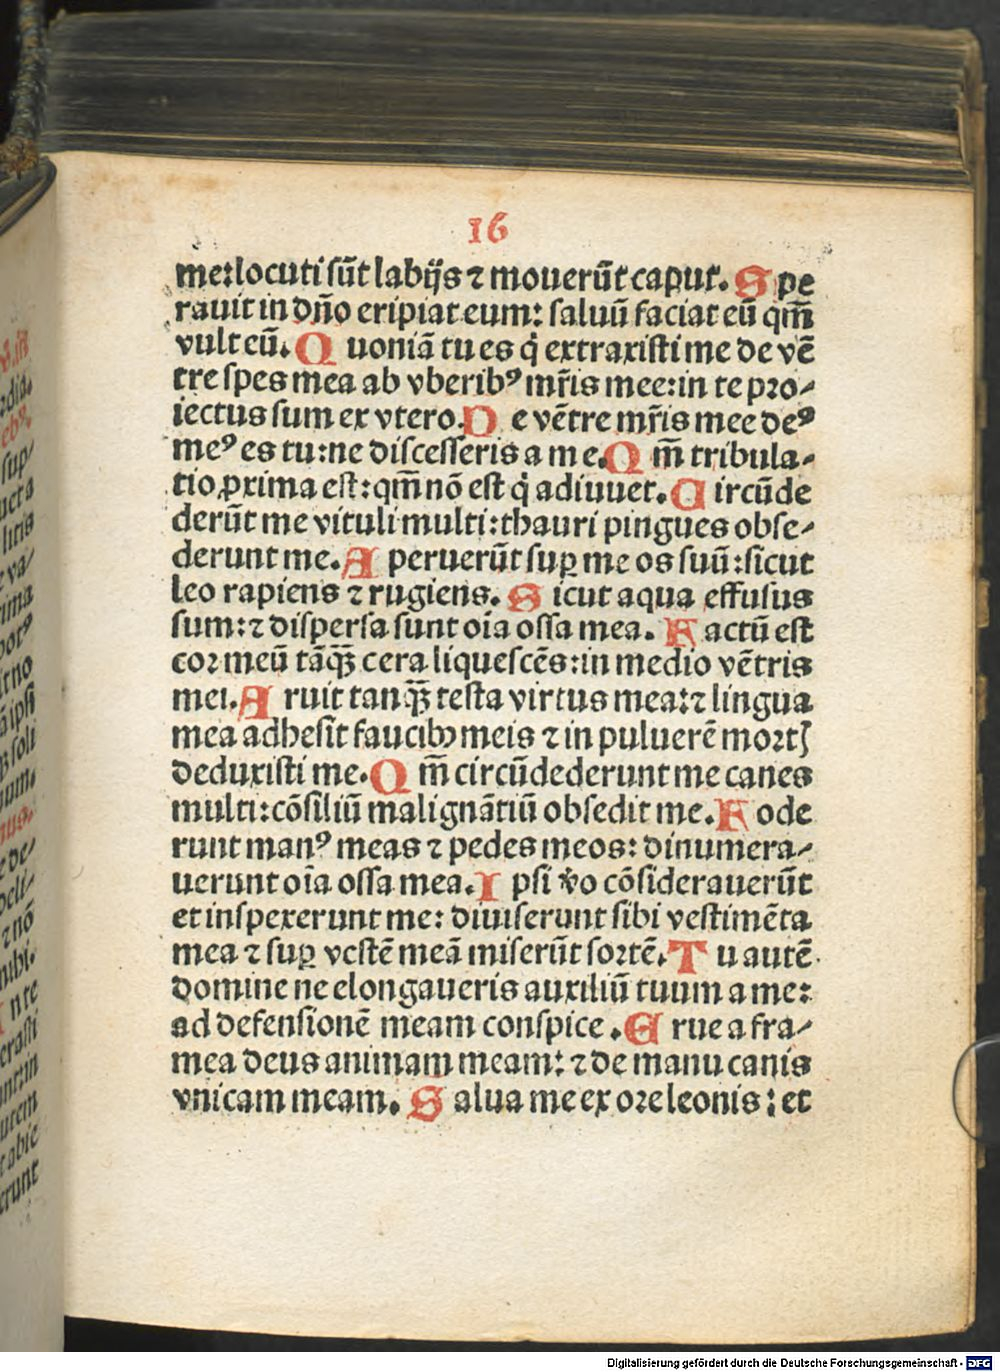 16
me: locuti sūt labijs ⁊ mouerūt caput. Spe
rauit in dño eripiat eum: saluū faciat eū qm̄
vult eū. Quoniā tu es q̇ extraxisti me de vē
tre spes mea ab vberibꝰ mr̄is mee: in te pro⸗
iectus sum ex vtero. De vētre mr̄is mee deꝰ
meꝰ es tu: ne discesseris a me. Qm̄ tribula⸗
tio ꝓxima est: qm̄ nō est q̇ adiuuet. Circūde
derūt me vituli multi: thauri pingues obse⸗
derunt me. Aperuerūt suꝑ me os suū: sicut
leo rapiens ⁊ rugiens. Sicut aqua effusus
sum: ⁊ dispersa sunt oīa ossa mea. Factū est
cor meū tāꝙ̄ cera liquescēs: in medio vētris
mei. Aruit tanꝙ̄ testa virtus mea: ⁊ lingua
mea adhesit faucibꝫ meis ⁊ in puluerē mortꝭ
deduxisti me. Qm̄ circūdederunt me canes
multi: cōsiliū malignātiū obsedit me. Fode
runt manꝰ meas ⁊ pedes meos: dinumera⸗
uerunt oīa ossa mea. Ipsi v̓o cōsiderauerūt
et inspexerunt me: diuiserunt sibi vestimēta
mea ⁊ suꝑ vestē meā miserūt sortē. Tu autē
domine ne elongaueris auxiliū tuum a me:
ad defensionē meam conspice. Erue a fra⸗
mea deus animam meam: ⁊ de manu canis
vnicam meam. Salua me ex ore leonis: et
Digitalisierung gefördert durch die Deutsche Forschungsgemeinschaft - DFG